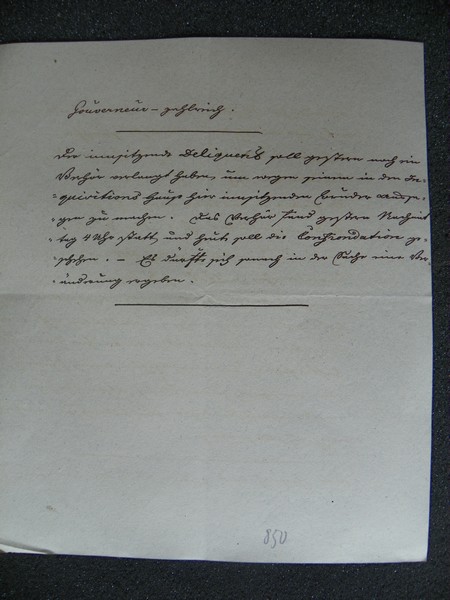 Gouverneur – zahlreich.
Der einsitzende Deliquent soll gestern noch ein
Verhör verlangt haben, um wegen seinem in den In-
-quisitions Hause hier einsitzenden Bruder Anzei-
-gen zu machen. Das Verhör fand gestern Nachmit
-tag 4 Uhr statt, und heute soll die Confrondation ge-
-schehen. – Es dürfte sich somit in der Sache eine Ver-
-änderung ergeben.
850